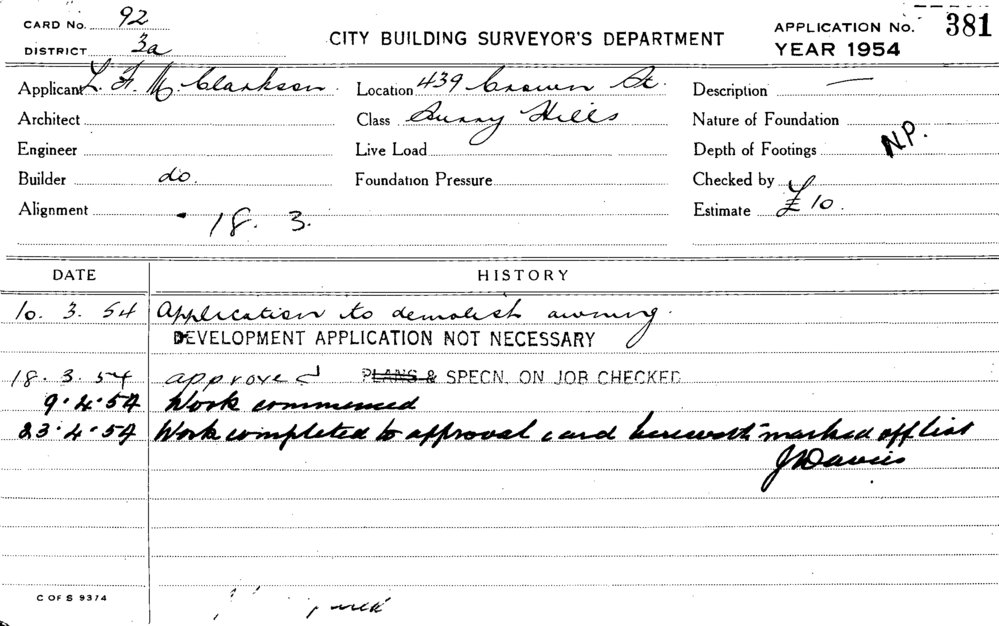 CARD No. 92
DISTRICT 3a
CITY BUILDING SURVEYOR'S DEPARTMENT
APPLICATION No. 381
YEAR 1954
Applicant L. F. M. Clarkson. Location 439 Crown St. Description —
Architect Class Surry Hills Nature of Foundation
Engineer Live Load Depth of Footings N.P.
Builder do. Foundation Pressure Checked by
Alignment 18. 3. Estimate £10.
DATE HISTORY
10. 3. 54 Application to demolish awning.
DEVELOPMENT APPLICATION NOT NECESSARY
18. 3. 54 approved PLANS & SPECN. ON JOB CHECKED
9.4.54 Work commenced
23.4.54 Work completed to approval card herewith marked off list
Davies
C OF S 9374